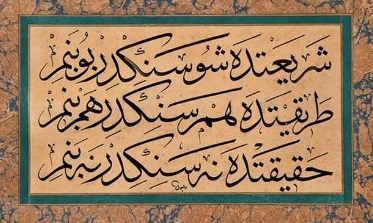 شريعتده شو سنڭدر بو بنم
طريقتده هم سنڭدر هم بنم
حقيقتده نه سنڭدر نه بنم